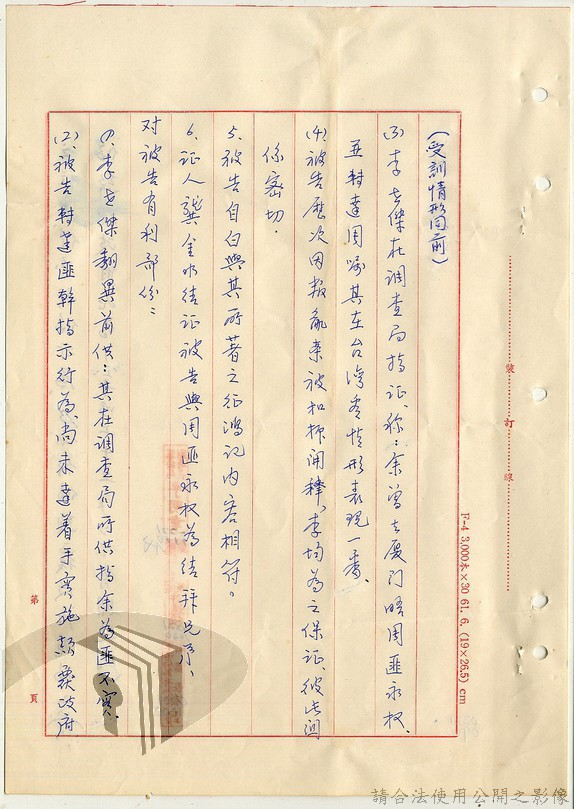 (受訓情形同前)
(3)李世傑在調查局指証、称：余曾去厦门晤周匪永权、
並轉達周囑其在台湾看情形表現一番、
(4)被告歷次因叛亂案被扣押開釋、李均為之保証、彼此间
係密切．
5.被告自白與其所著之征鴻记内容相符。
6.证人龔金水结证被告與周匪永权為结拜兄弟、
对被告有利部份：
(1)、李世傑翻異前供：其在調查局所供指余為匪不實、
(2)、被告轉達匪幹指示行為、尚未達着手實施顛覆政府
第 頁
裝 訂 線
F-4 3,000本×30 61. 6. (19×26.5) cm
請合法使用公開之影像